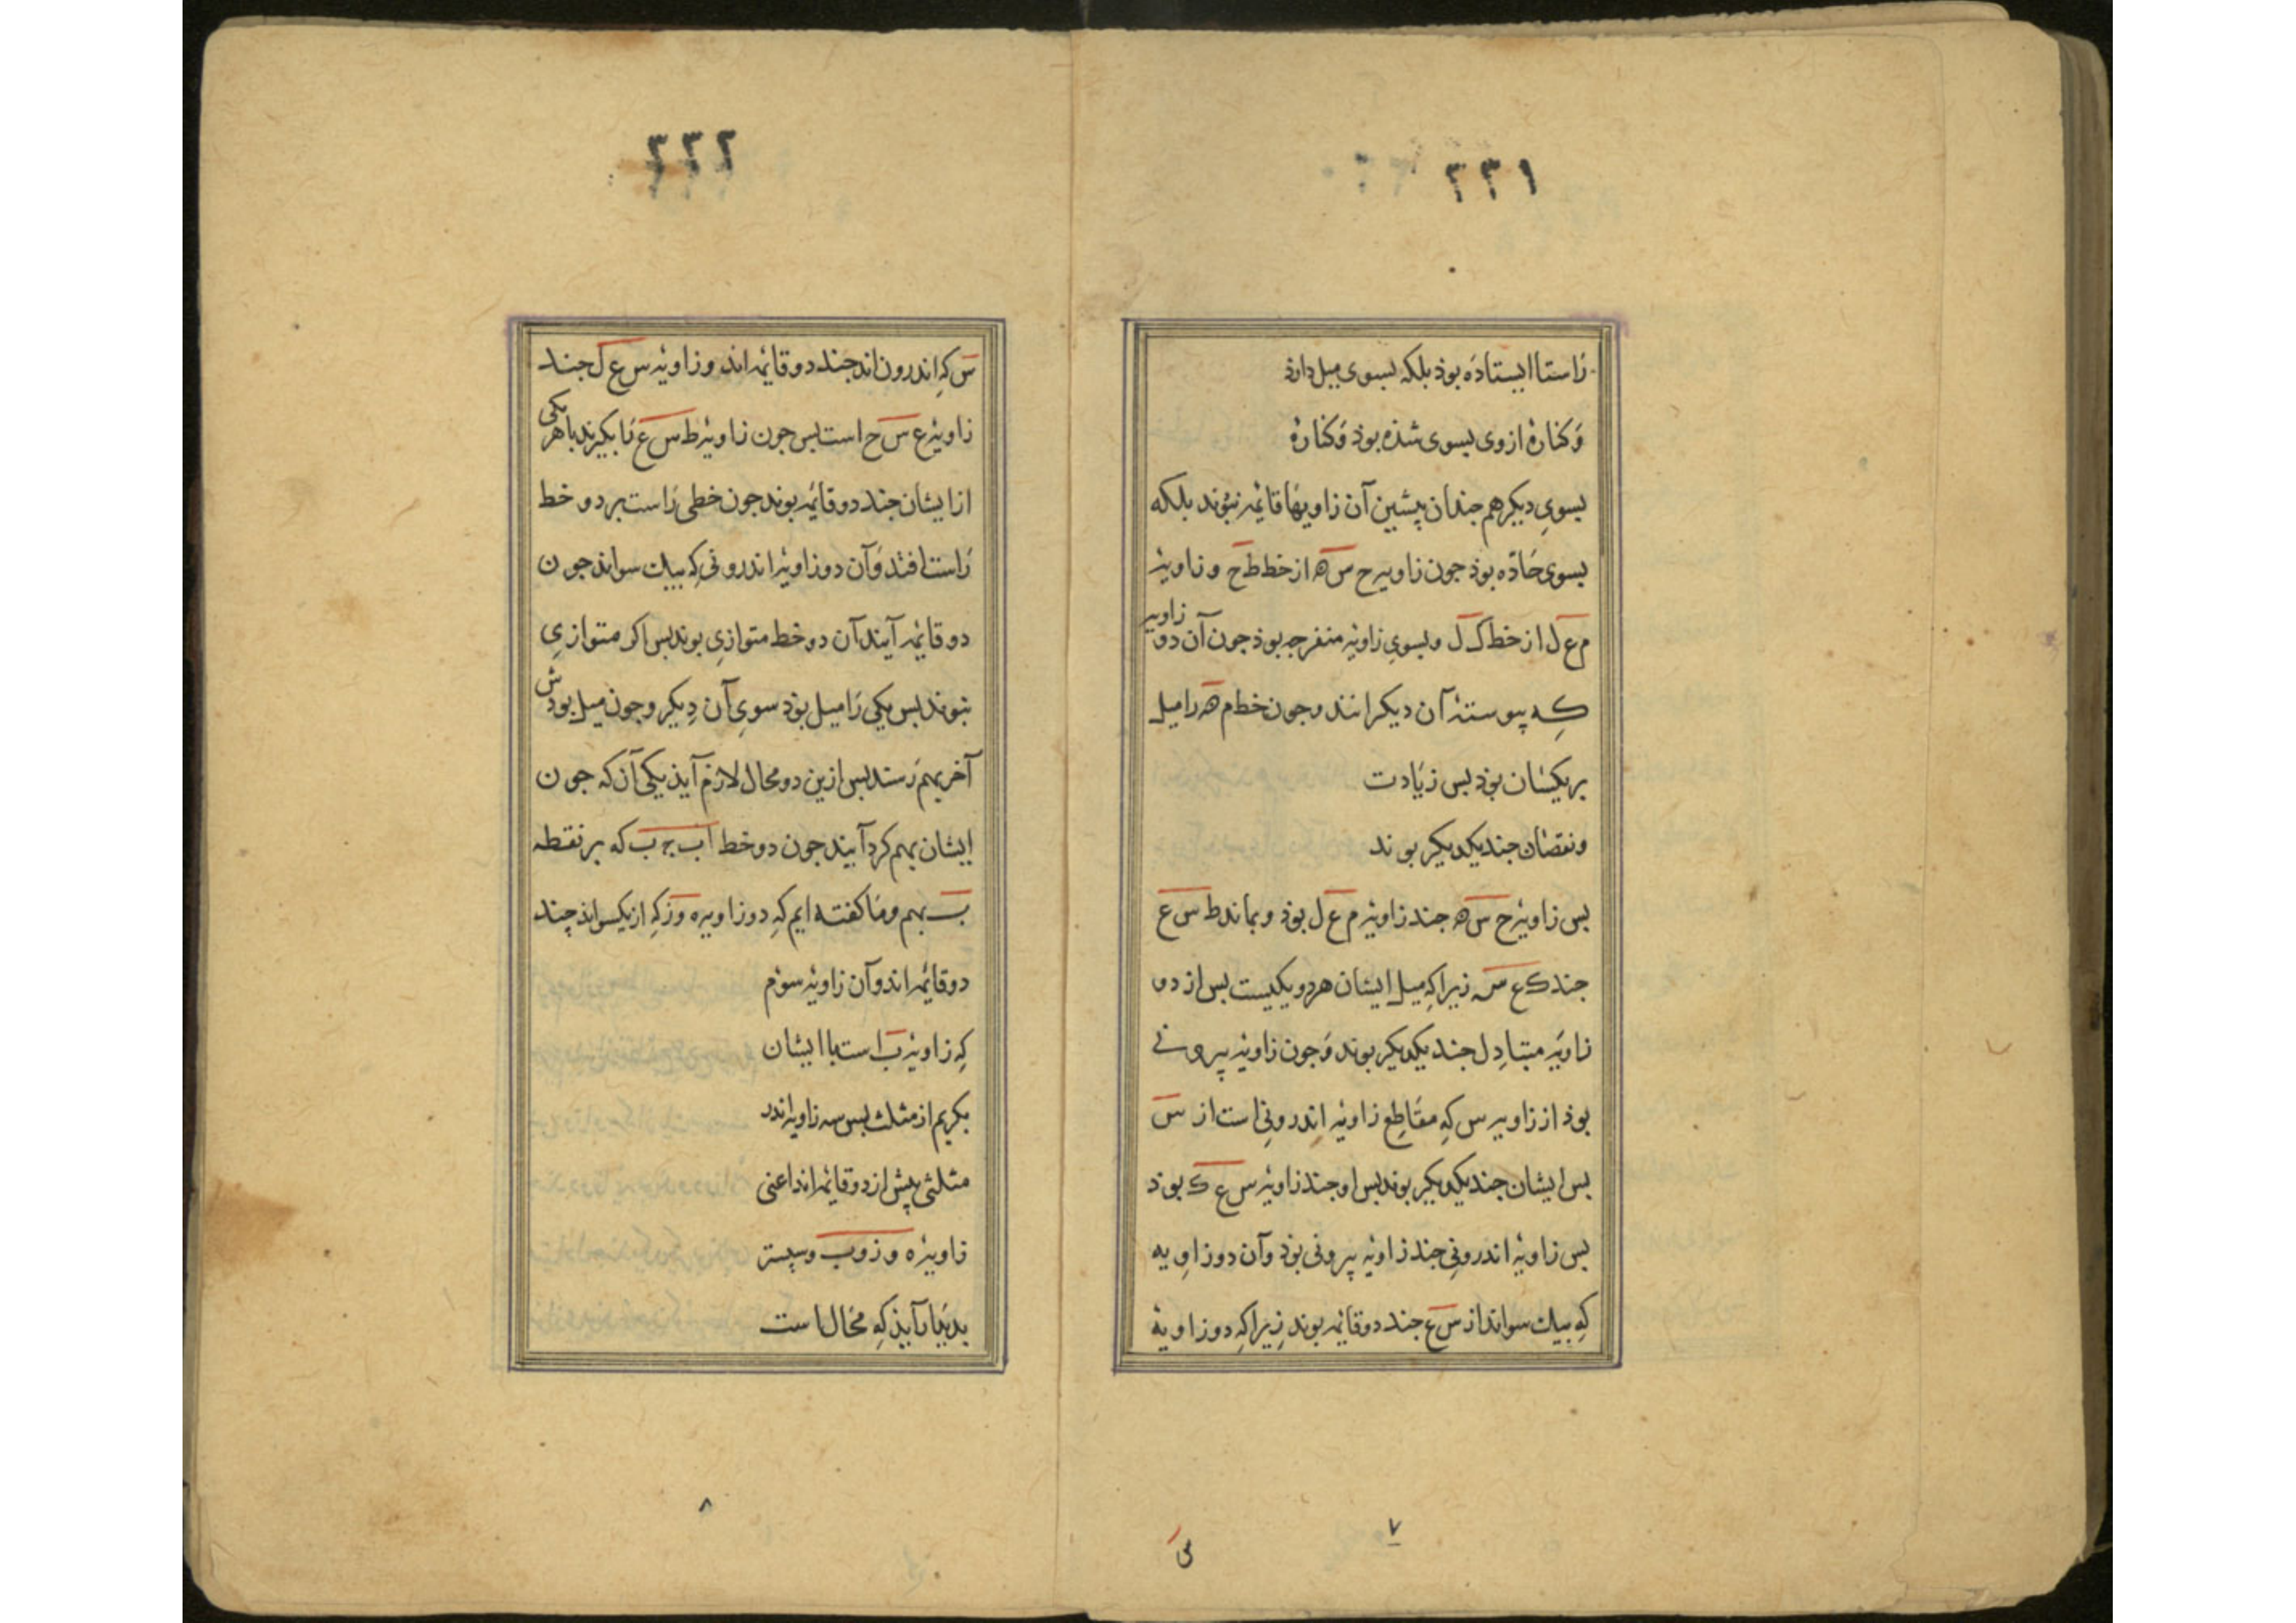 ۲۲۱
راستا ایستاده بوذ بلکه بسوی میل دارذ
وَکنارهٔ از وی بسوی شذه بوذ وَکنارهٔ
بسویِ دیکر هم جندان پیشین آن زاویهَا قائمه نبُوند بلکه
بسوی حَادّه بوذ جون زاویه ح س ه از خط ط ح و زاویهٔ
م ع ل از خط ک ل و بسویِ زاویهٔ منفرجه بوذ جون آن دو زاویه
کِه پیوستهٔ آن دیکرانند و جون خط م ه را میل
بریکسان بوذ بس زیَادت
و نقصَان جند یکدیکر بوند
بس زاویهٔ ح س ه جند زاویهٔ م ع ل بوذ و بماند ط س ع
جند ک ع س زیراکِه میل ایشان هردو یکیست بس از دو
زاویَه متبادِل جند یکدیکر بوند وَجون زاویهٔ بیرونی
بوذ از زاویه س کِه مقَاطِع زاویهٔ اِندرونِی است از س
بس ایشان جند یکدیکر بوند بس او جند زاویهٔ س ع ک بوذ
بس زاویهٔ اندرونِی جند زاویهٔ بیرونی بوذ وآن دو زاوِیه
کِه بیك سواند از س ع جند دو قائمه بوند زِیراکِه دو زاویهٔ
۷
س
۲۲۲
س کِه اندرون اند جند دو قائمه اند و زاویهٔ س ع ل جند
زاویهٔ ع س ح است بس جون زاویهٔ ط س ع رَا بکیرند با هر یکی
از ایشان جند دو قائمه بوند جون خطی رَاست بر دو خط
رَاست افتد وَآن دو زاویهٔ اندرونی کِه بیك سواند جون
دو قائمه آیند آن دو خط متوازِی بوند بس اکر متوازِیِ
نبوند بس یکی رَا میل بوذ سویِ آن دِیکر و جون میل بوذش
آخر بهم رَسند بس ازین دو محال لازم آیذ یکی آن که جون
ایشان بهم کرد آیند جون دو خط اب ج ب که بر نقطه
ب بهم و مَا کفته ایم کِه دو زاویه ه و ز کِه از یکسو اند چند
دو قائمه اند وآن زاویهٔ سوم
کِه زاویهٔ ب است با ایشان
بکریم از مثلث بس سه زاویه اندر
مثلثی پیش از دو قائمه اند اعنی
زاویهٔ ه و ز و ب و سپستر
بدیَیار آیذ کِه محَال است
۸